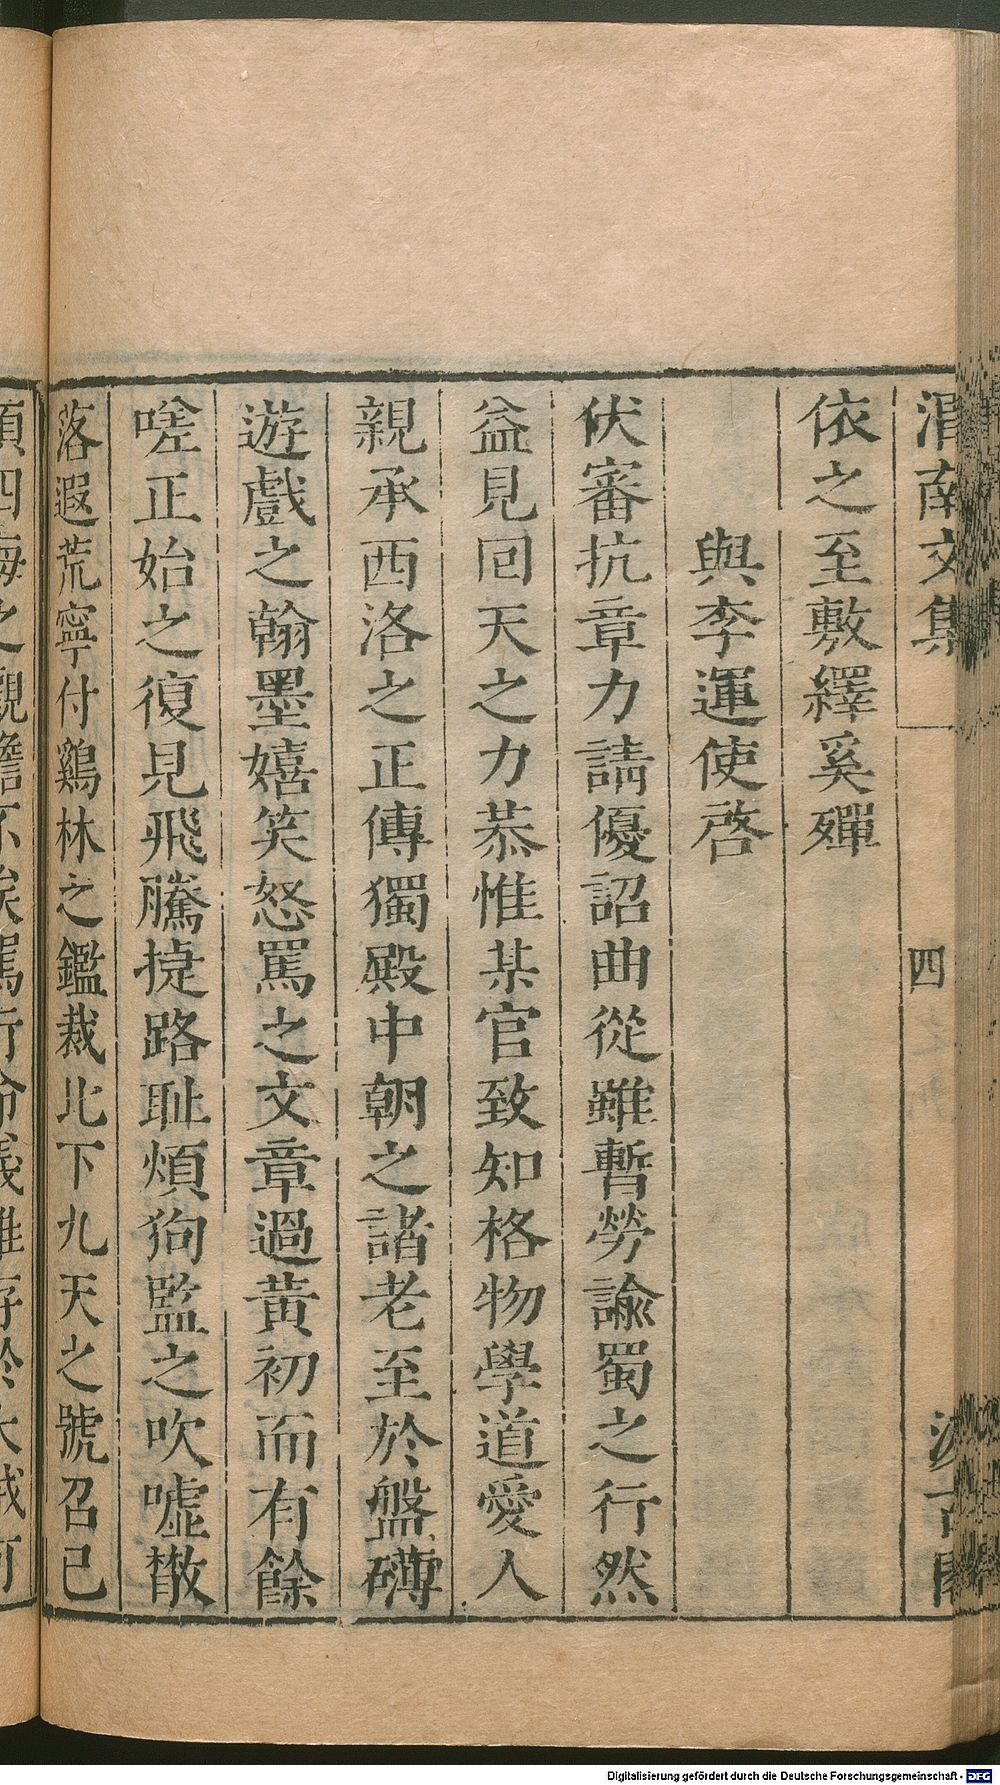 渭南文集 四 汲古閣
依之至敷繹奚殫
與李運使啓
伏審抗章力請優詔曲從雖暫勞諭蜀之行然
益見回天之力恭惟某官致知格物學道愛人
親承西洛之正傳獨殿中朝之諸老至於盤礴
遊戲之翰墨嬉笑怒罵之文章過黃初而有餘
嗟正始之復見飛騰捷路耻煩狗監之吹噓散
落遐荒寧付鷄林之鑑裁北下九天之號召已
傾四海之觀瞻不俟駕行命義雖存於大戒可
Digitalisierung gefördert durch die Deutsche Forschungsgemeinschaft - DFG